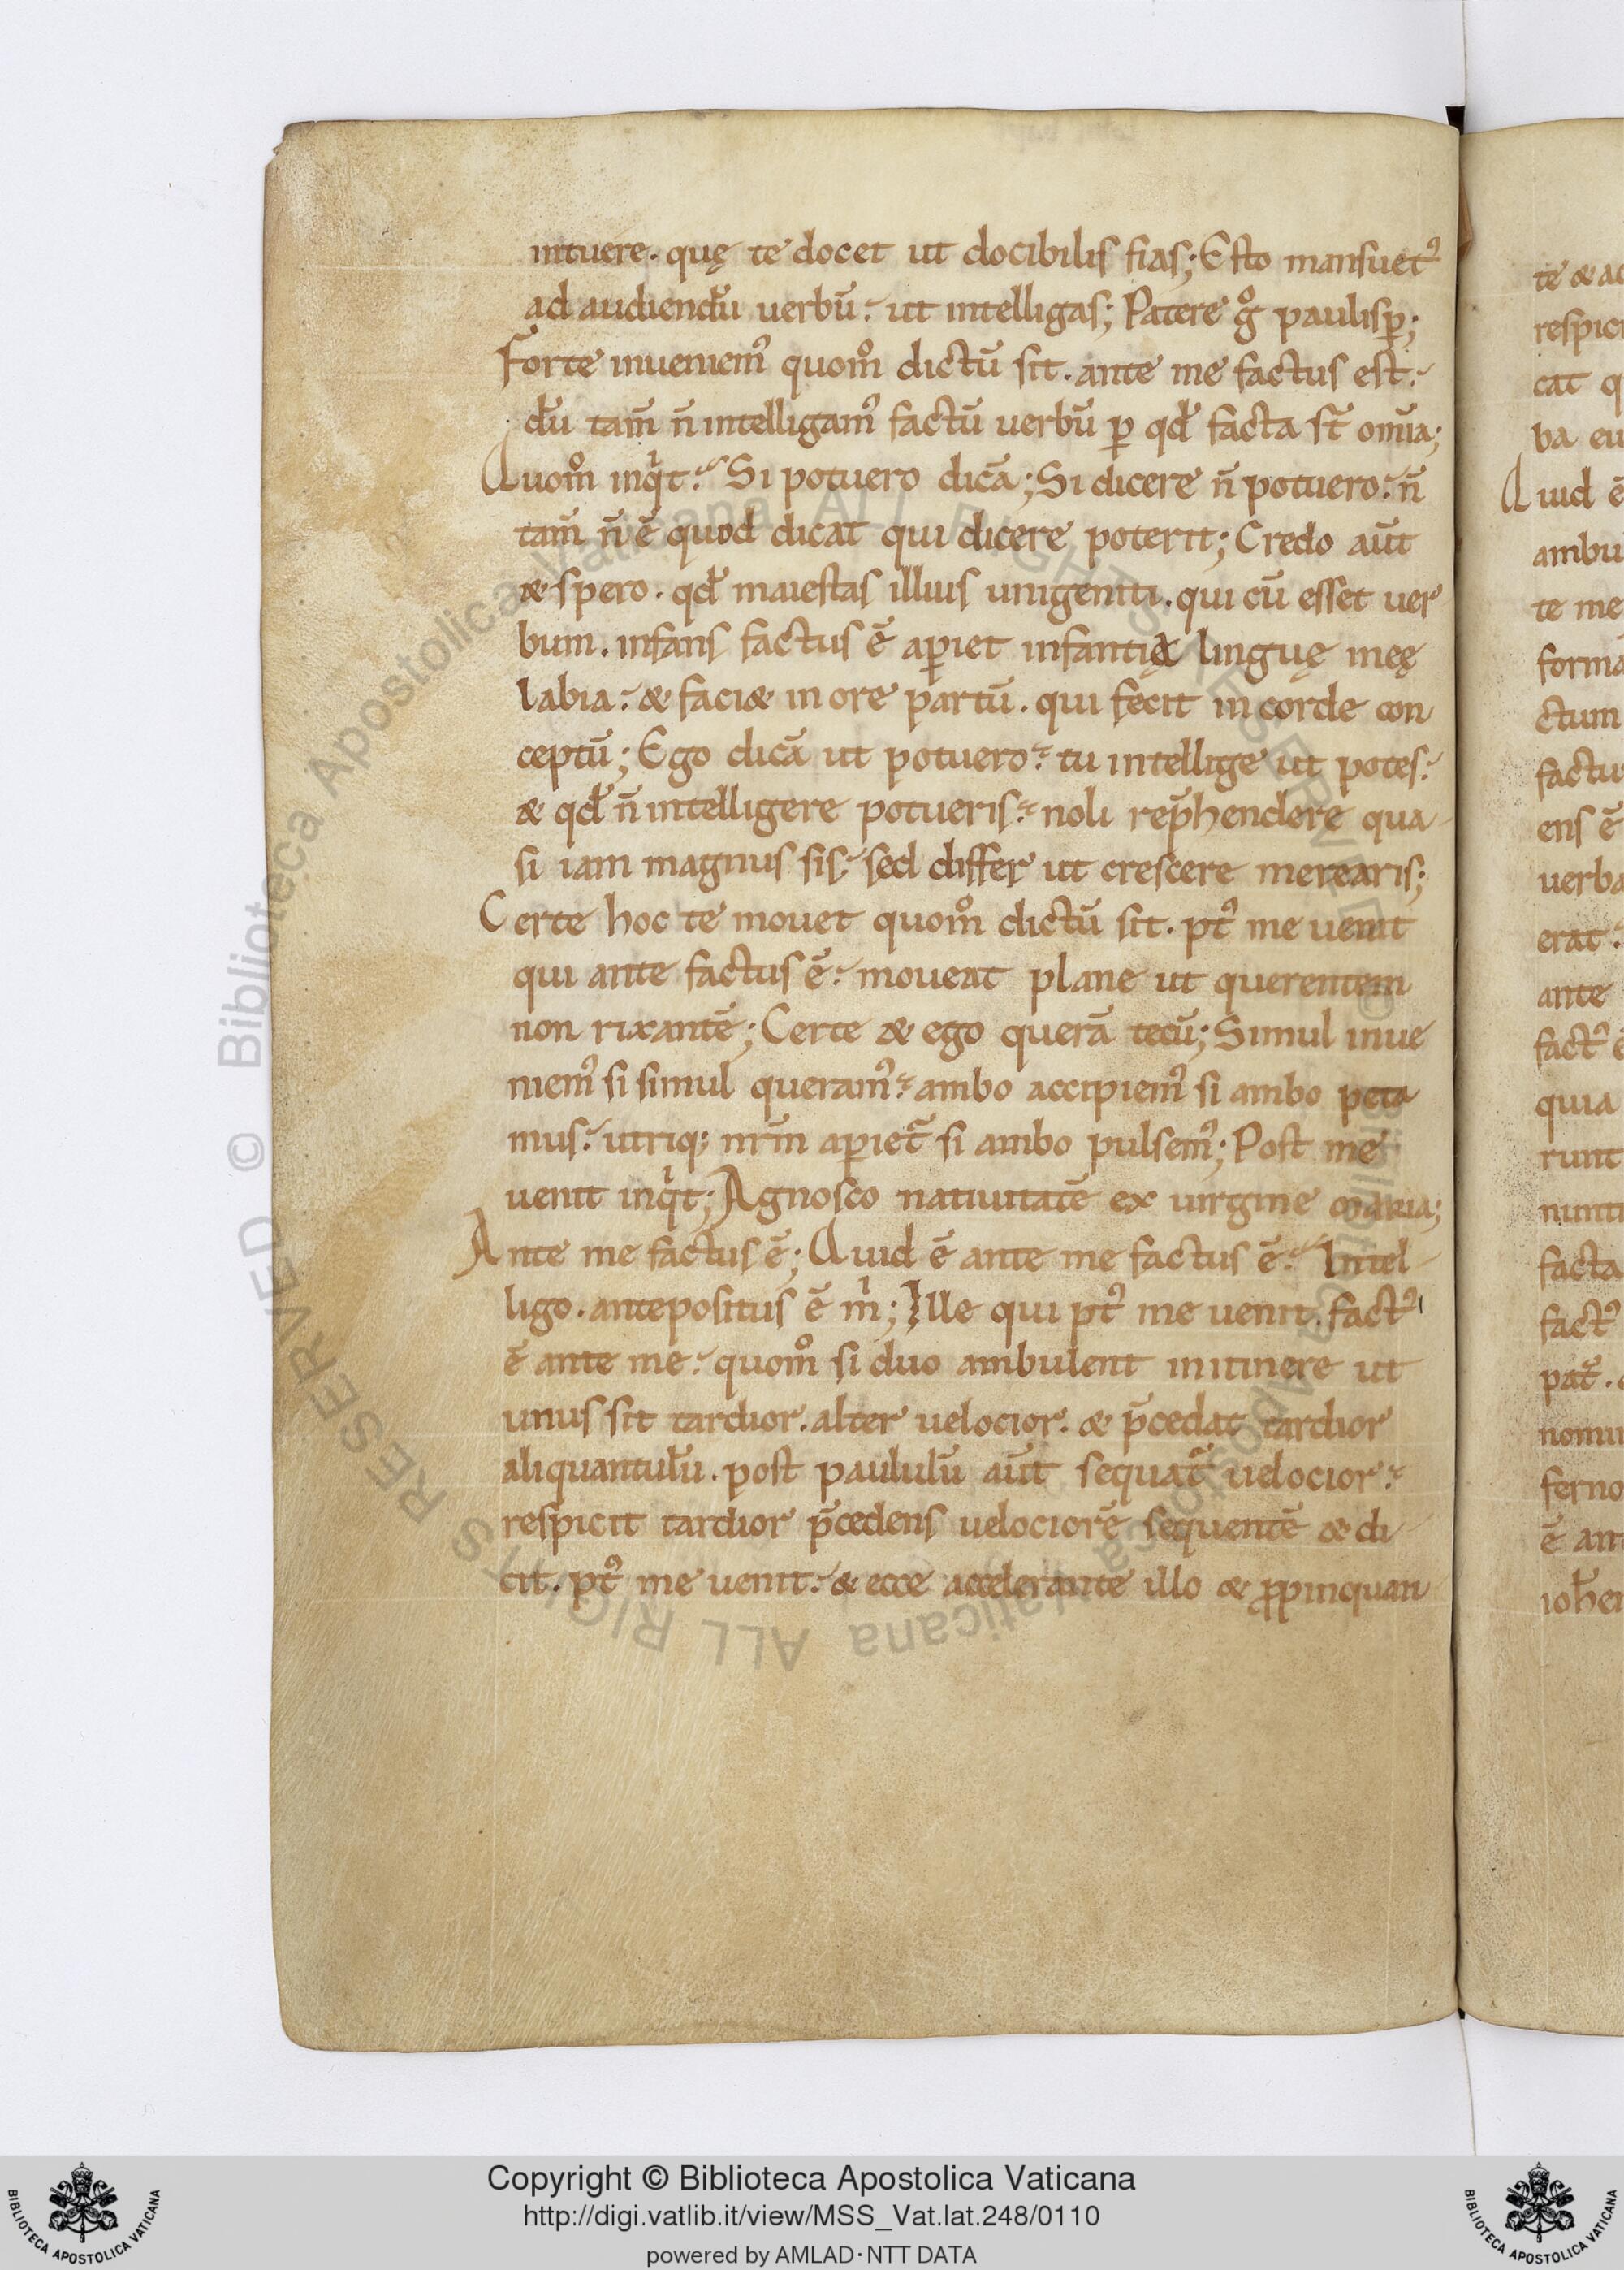 intuere. quę te docet ut docibilis fias; Esto mansuetꝰ
ad audiendū uerbū. ut intelligas; Patere gͦ paulisꝑ;
Forte inueniemꝰ quom̊ dictū sit. ante me factus est.
dū tam̄ n̄ intelligamꝰ factū uerbū ꝑ qđ facta st̄ om̄ia;
Quom̊ inqͥt. Si potuero dicā; Si dicere n̄ potuero. n̄
tam̄ n̄ ē quod dicat qui dicere poterit; Credo aūt
& spero. qđ maiestas illius unigeniti. qui cū esset uer
bum. infans factus ē aꝑiet infantię linguę meę
labia. & faci& in ore partū. qui fecit in corde con
ceptū; Ego dicā ut potuero. tu intellige ut potes.
& qđ n̄ intelligere potueris. noli rep̄hendere qua
si iam magnus sis. sed differ ut crescere merearis;
Certe hoc te mouet quom̊ dictū sit. pꞇꝰ me uenit
qui ante factus ē. moueat plane ut querentem
non rixantē; Certe & ego querā tecū; Simul inue
niemꝰ si simul queramꝰ. ambo accipiemꝰ si ambo peta
mus. utriq; nr̄m aꝑiet᷑ si ambo pulsemꝰ; Post me
uenit inqͥt; Agnosco natiuitatē ex uirgine maria;
Ante me factus ē; Quid ē ante me factus ē. Intel
ligo. antepositus ē mͥ; Ille qui pꞇꝰ me uenit. factꝰ
ē ante me. quom̊ si duo ambulent in itinere ut
unus sit tardior. alter uelocior. & p̄cedat tardior
aliquantulū. post paululū aūt sequat᷑ uelocior.
respicit tardior p̄cedens uelociorē sequentē & di
cit. pꞇꝰ me uenit. & ecce accelerante illo & ꝓpinquan
te & ac
cat q
Quid ē
ambu
te me
forma
ctum
ens ē
uerba
erat.
ante
quia
runt
facta
factꝰ
ferno
ē an
© Biblioteca Apostolica Vaticana ALL RIGHTS RESERVED
Copyright © Biblioteca Apostolica Vaticana
http://digi.vatlib.it/view/MSS_Vat.lat.248/0110
powered by AMLAD·NTT DATA
BIBLIOTECA APOSTOLICA VATICANA
BIBLIOTECA APOSTOLICA VATICANA